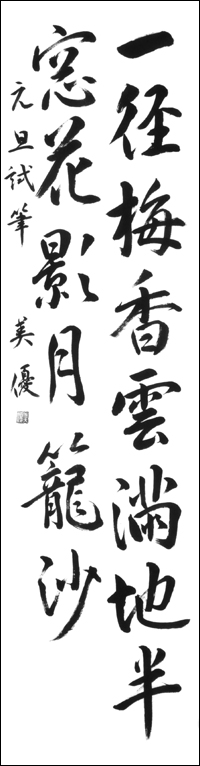 一径梅香雲満地半
窓花影月籠沙
元旦試筆 英優